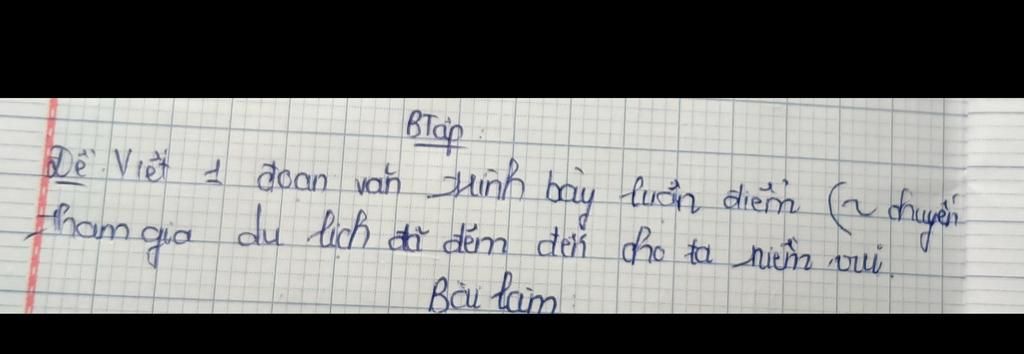 BTập
Đề: Viết 1 đoạn văn trình bày luận điểm (~ chuyến
tham gia du lịch đã đêm đến cho ta niềm vui.
Bài làm